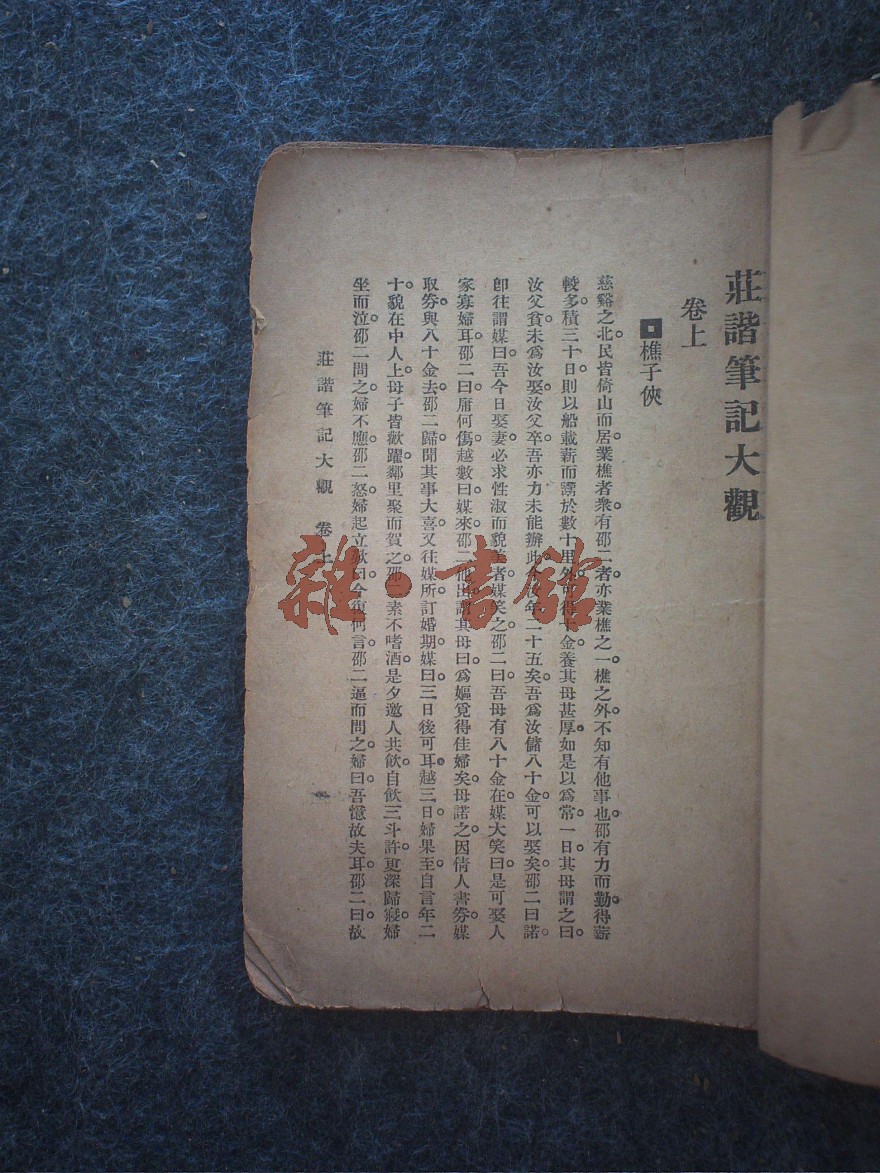 莊諧筆記大觀
卷上
樵子俠
慈谿之北民皆倚山而居業樵者衆。有邵二者亦業樵之一樵之外。不知有他事也。邵有力而勤。得薪
較多。積三十日。則以船載薪而鬻於數十里外。可得十金。養其母甚厚。如是以爲常。一日。其母謂之曰。
汝父貧。未爲汝娶。汝父卒。吾亦力未能辦此。今汝年二十五矣。吾爲汝儲八十金。可以娶矣。邵二曰。諾。
卽往謂媒曰。吾今日娶妻。必求性淑而貌美者。媒笑之。邵二曰。吾母有八十金在。媒大笑曰。是可娶人
家寡婦耳。邵二曰。庸何傷。越數日。媒來。邵二他出。謂其母曰。爲嫗覓得佳婦矣。母諾之。因倩人書券。媒
取券與八十金去。邵二歸聞其事大喜。又往媒所訂婚期。媒曰。三日後可耳。越三日。婦果至。自言年二
十。貌在中人上。母子皆歡躍。鄰里聚而賀之。邵二素不嗜酒。是夕邀人共飲。自飲三斗許。更深歸寢。婦
坐而泣。邵二問之。婦不應。邵二怒。婦起立歎曰。今復何言。邵二逼而問之。婦曰。吾憶故夫耳。邵二曰。故
莊諧筆記大觀 卷上
一
雜·書館